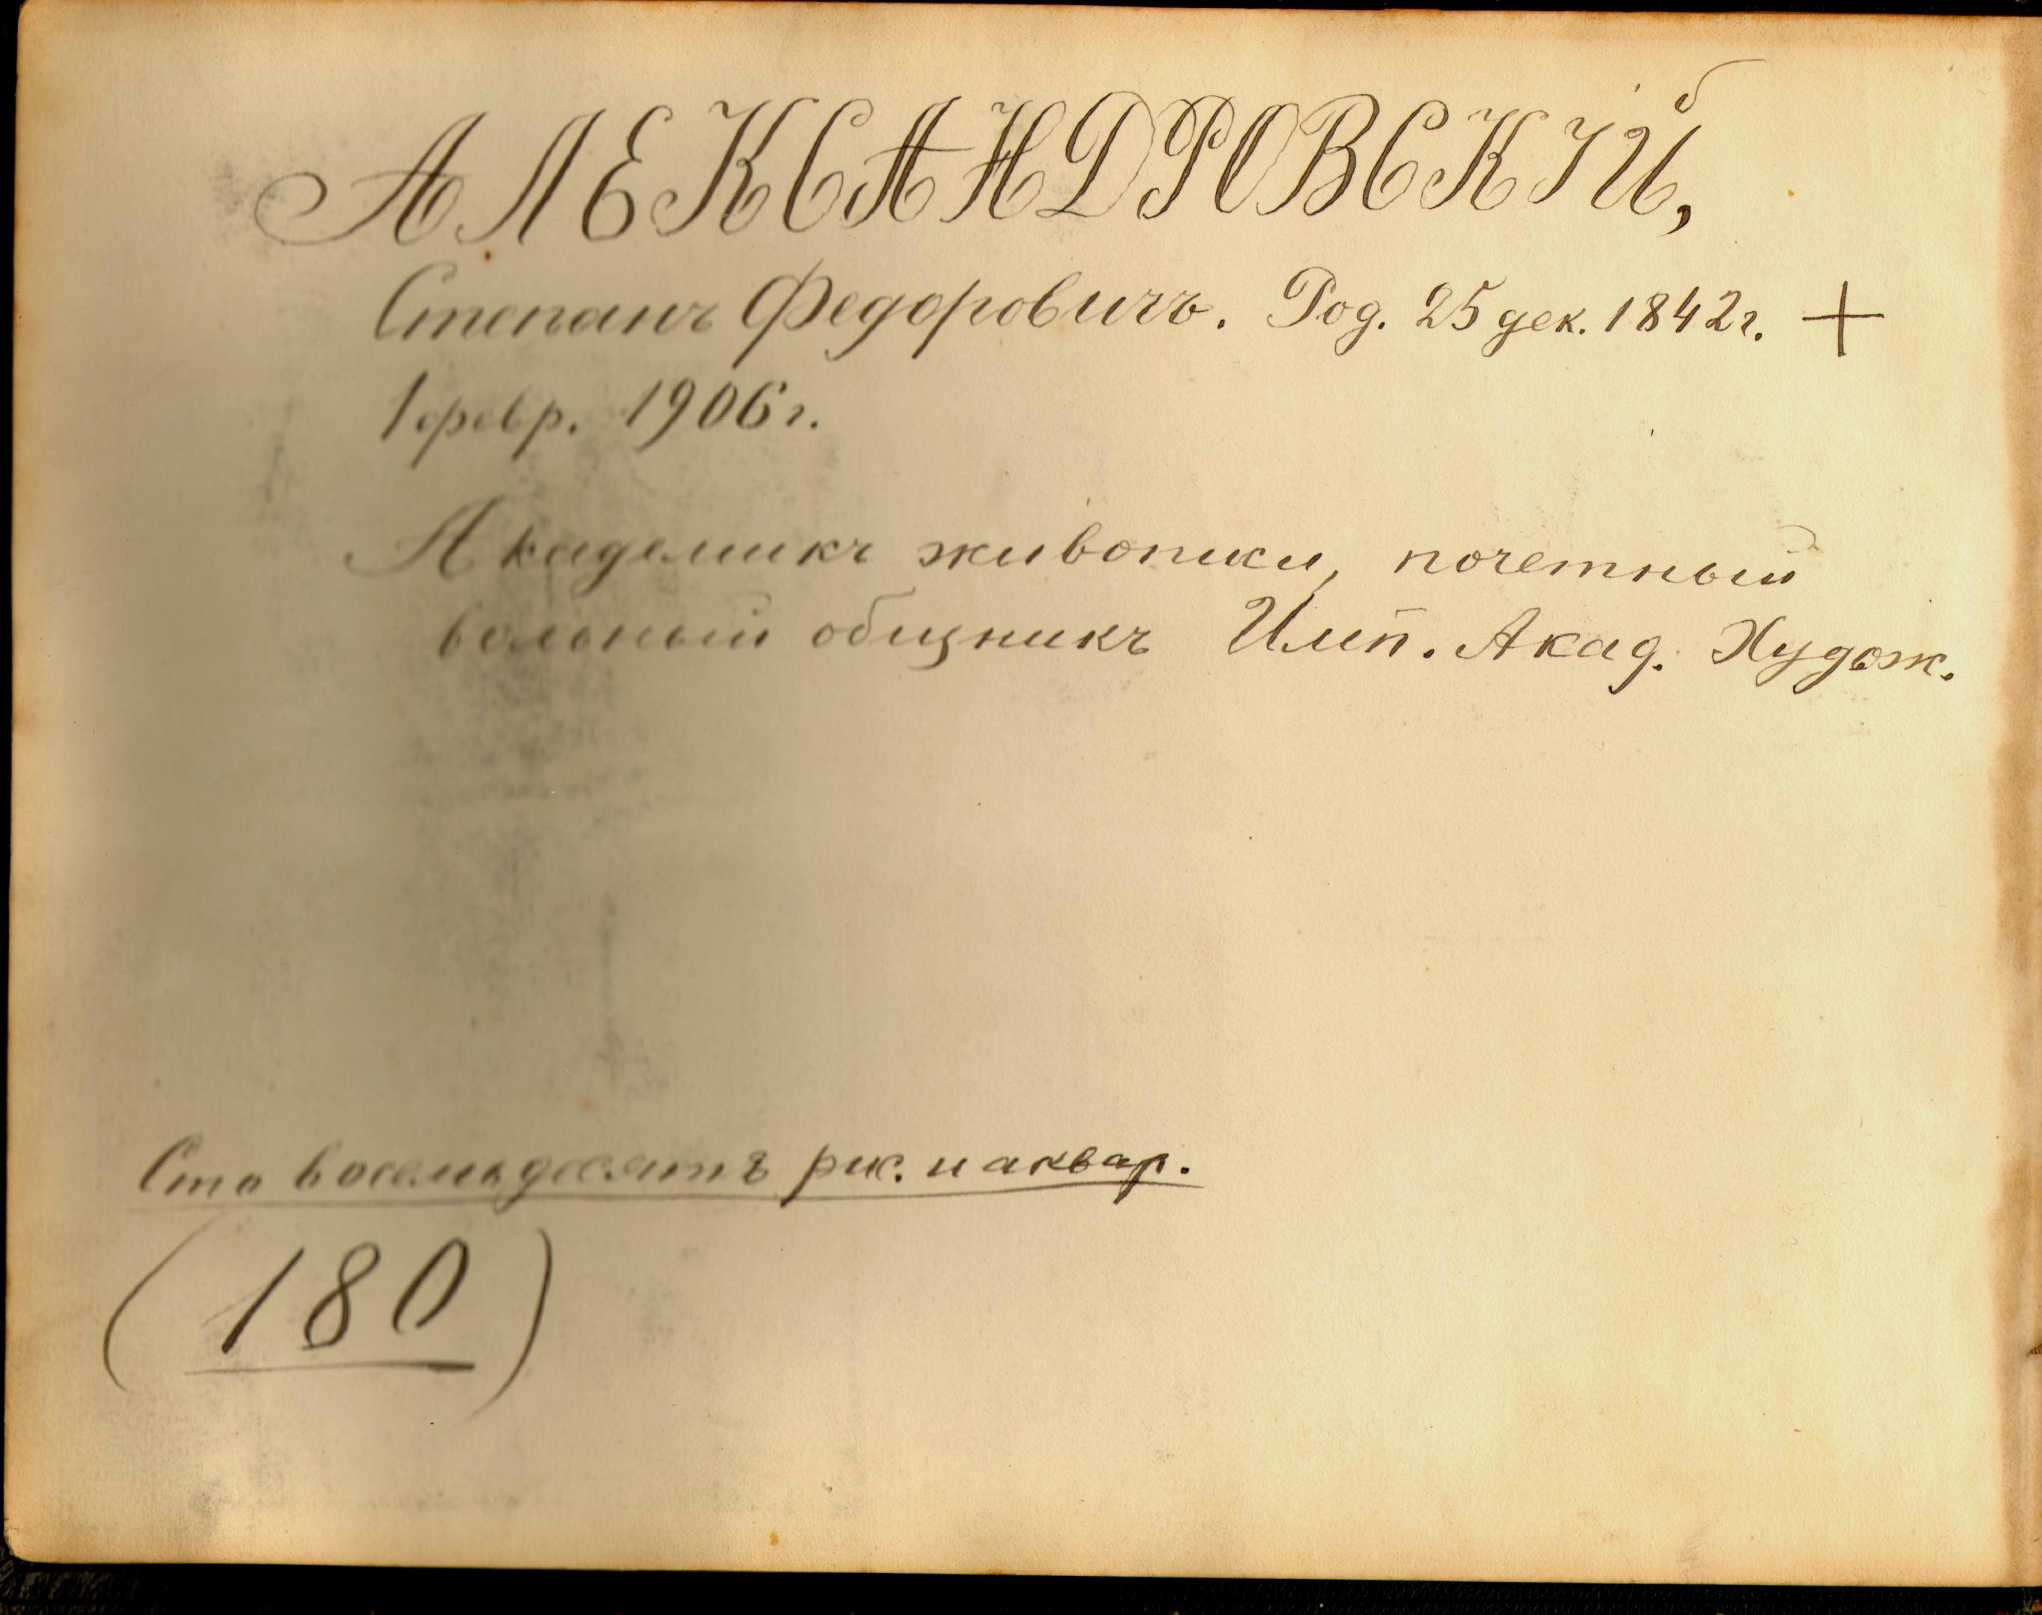 АЛЕКСАНДРОВСКІЙ,
Степанъ Федоровичъ. Род. 25 дек. 1842 г. +
1 февр. 1906 г.
Академикъ живописи, почетный
вольный общникъ Имп. Акад. Худож.
Сто восемьдесятъ рис. и аквар.
(180)